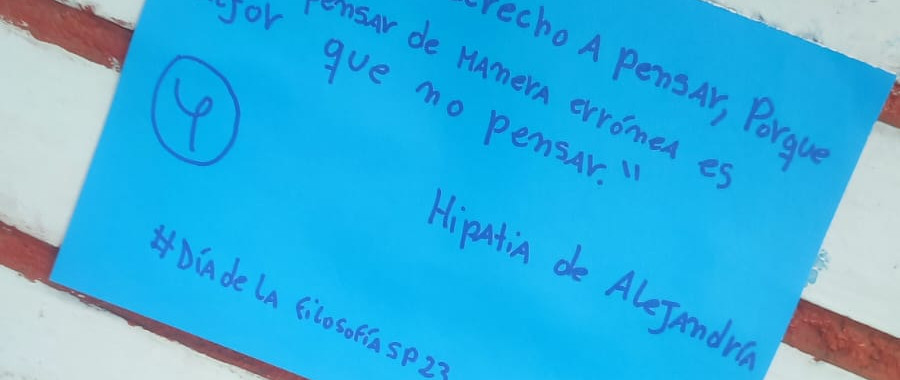 erecho A pensar, Porque
pensar de MANerA errónea es
jor que no pensar."
φ
Hipatia de Alejandría
#Día de la filosofía SP23